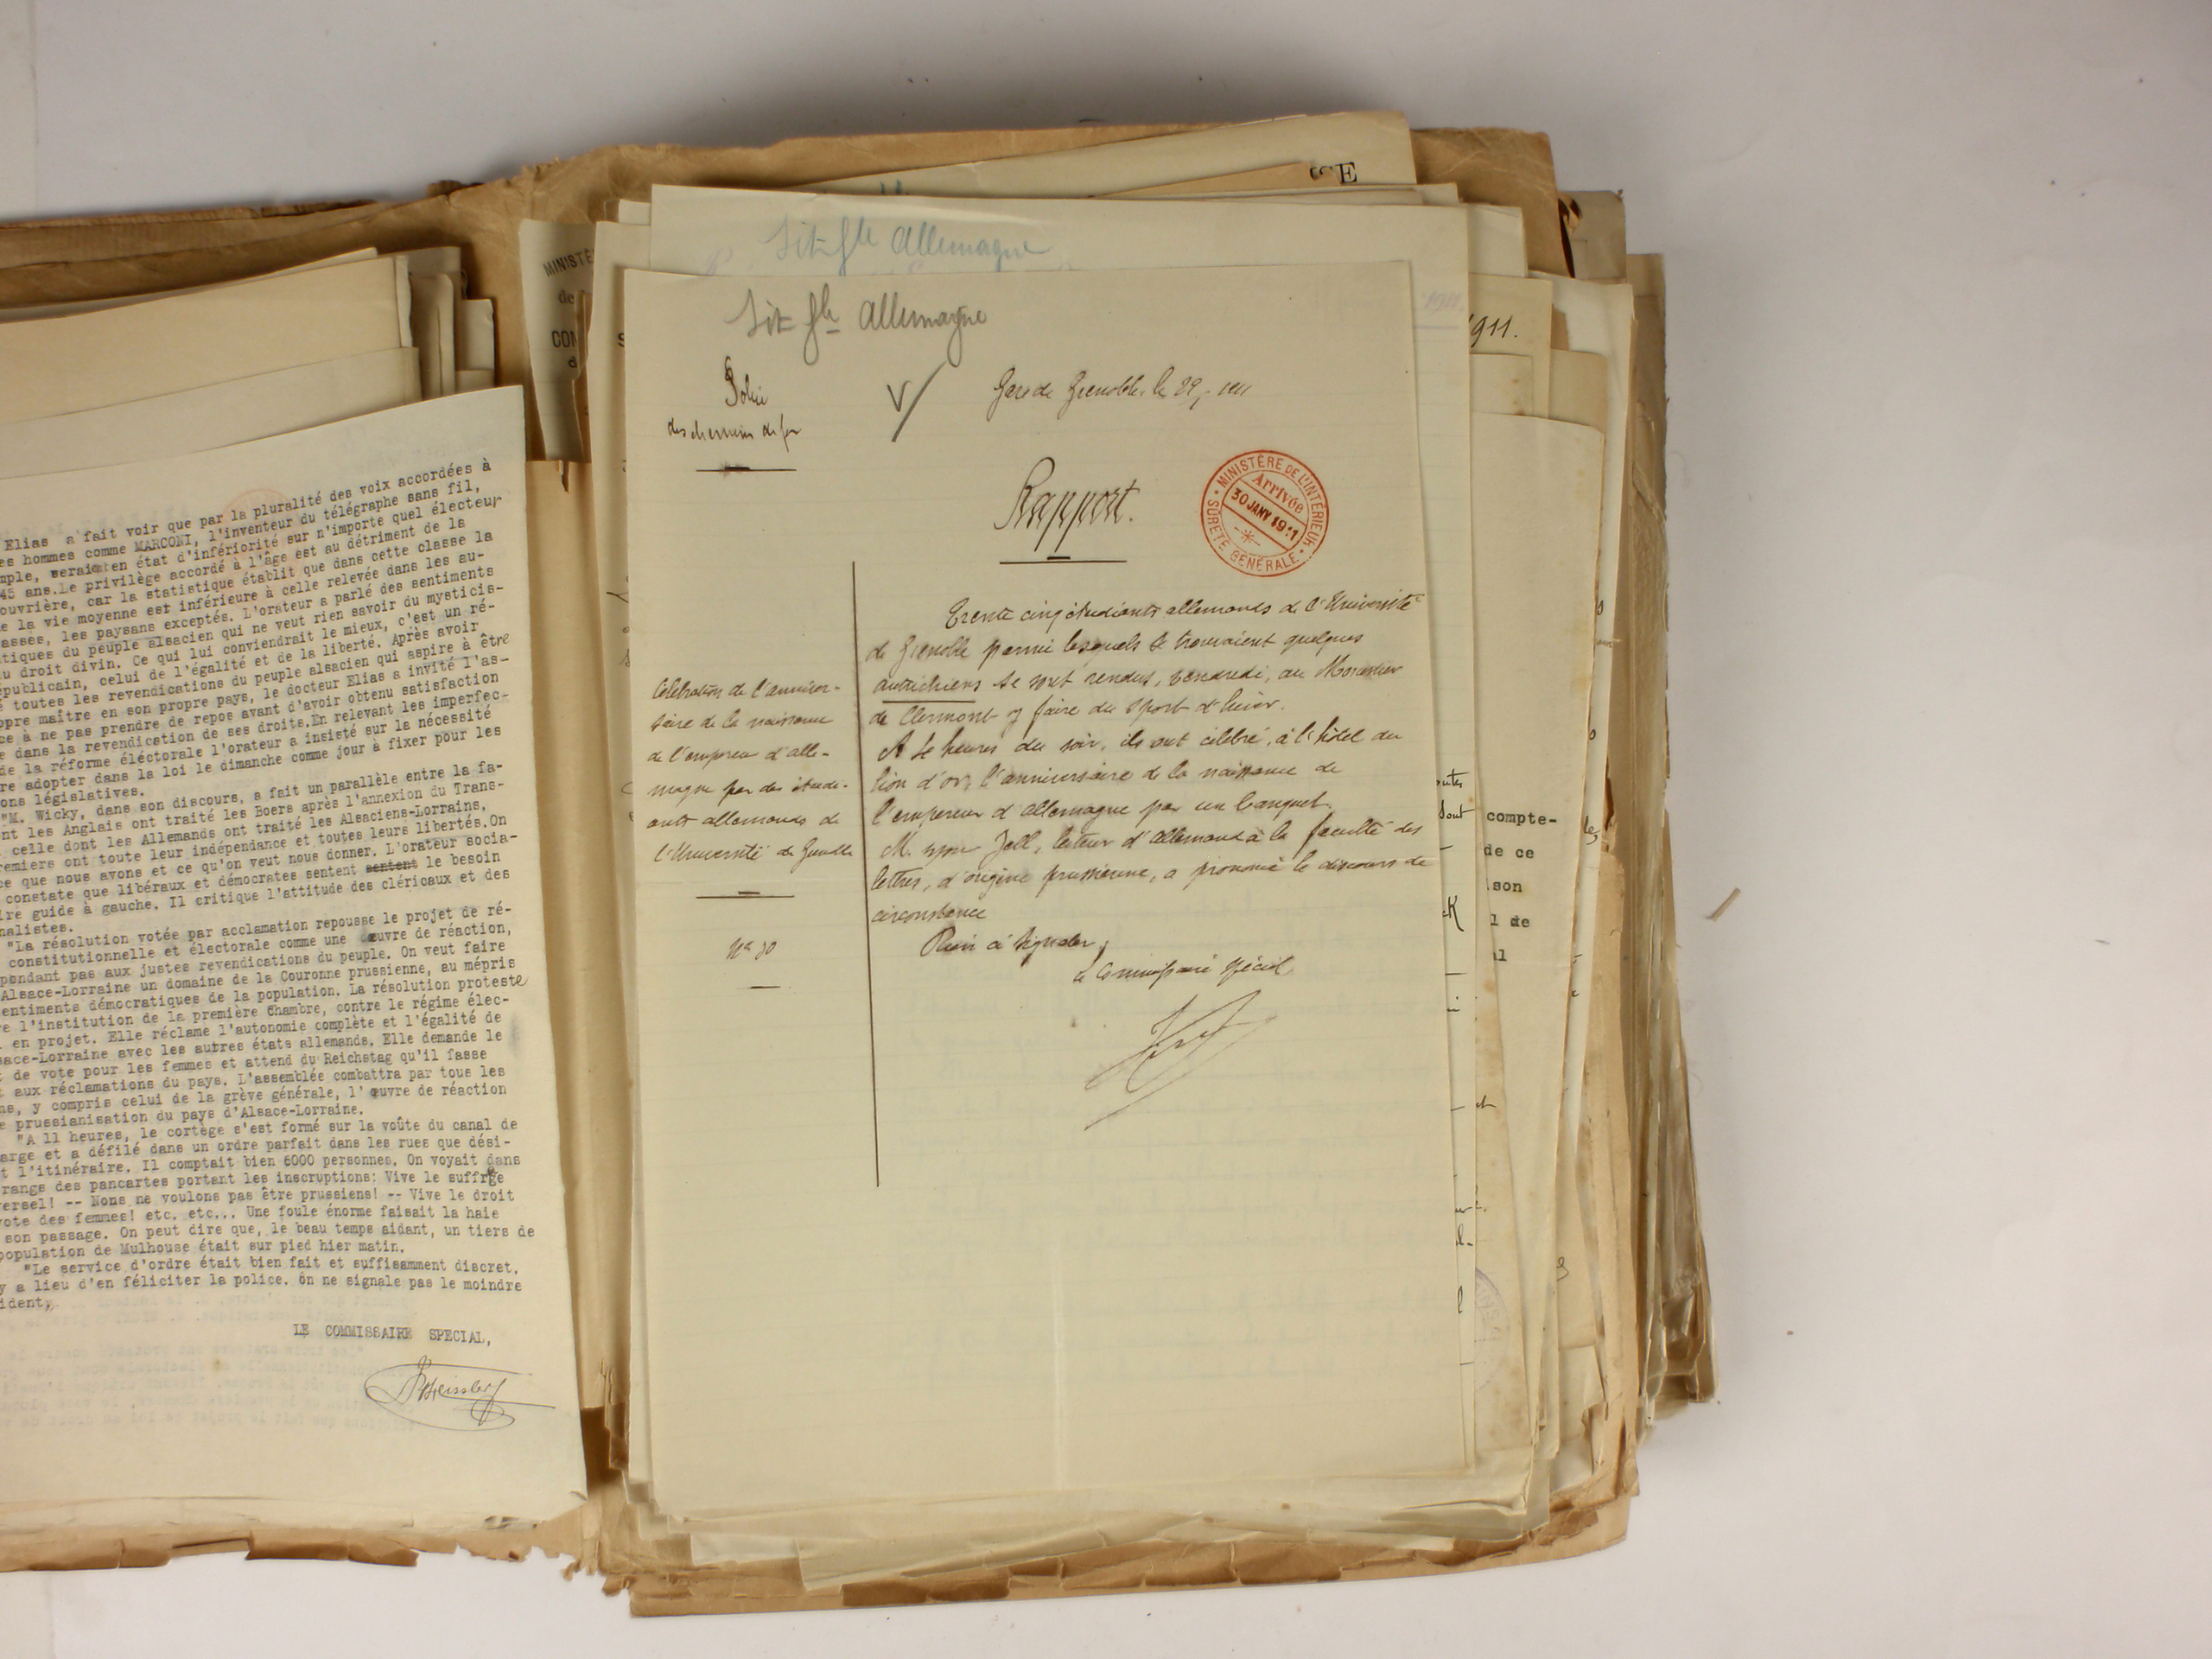 Elias a fait voir que par la pluralité des voix accordées à
es hommes comme MARCONI, l'inventeur du télégraphe sans fil,
mple, seraient en état d'infériorité sur n'importe quel électeur
45 ans. Le privilège accordé à l'âge est au détriment de la
ouvrière, car la statistique établit que dans cette classe la
e la vie moyenne est inférieure à celle relevée dans les au-
asses, les paysans exceptés. L'orateur a parlé des sentiments
tiques du peuple alsacien qui ne veut rien savoir du mysticis-
u droit divin. Ce qui lui conviendrait le mieux, c'est un ré-
épublicain, celui de l'égalité et de la liberté. Après avoir
é toutes les revendications du peuple alsacien qui aspire à être
opre maître en son propre pays, le docteur Elias a invité l'as-
ce à ne pas prendre de repos avant d'avoir obtenu satisfaction
e dans la revendication de ses droits. En relevant les imperfec-
de la réforme éléctorale l'orateur a insisté sur la nécessité
re adopter dans la loi le dimanche comme jour à fixer pour les
ons législatives.
"M. Wicky, dans son discours, a fait un parallèle entre la fa-
nt les Anglais ont traité les Boers après l'annexion du Trans-
celle dont les Allemands ont traité les Alsaciens-Lorrains.
remiers ont toute leur indépendance et toutes leurs libertés. On
ce que nous avons et ce qu'on veut nous donner. L'orateur socia-
constate que libéraux et démocrates sentent sentent le besoin
ire guide à gauche. Il critique l'attitude des cléricaux et des
nalistes.
"La résolution votée par acclamation repousse le projet de ré-
constitutionnelle et électorale comme une œuvre de réaction,
pondant pas aux justes revendications du peuple. On veut faire
Alsace-Lorraine un domaine de la Couronne prussienne, au mépris
entiments démocratiques de la population. La résolution proteste
e l'institution de la première Chambre, contre le régime élec-
en projet. Elle réclame l'autonomie complète et l'égalité de
sace-Lorraine avec les autres états allemands. Elle demande le
t de vote pour les femmes et attend du Reichstag qu'il fasse
t aux réclamations du pays. L'assemblée combattra par tous les
ns, y compris celui de la grève générale, l'œuvre de réaction
e prussianisation du pays d'Alsace-Lorraine.
"A 11 heures, le cortège s'est formé sur la voûte du canal de
arge et a défilé dans un ordre parfait dans les rues que dési-
t l'itinéraire. Il comptait bien 6000 personnes. On voyait dans
rangs des pancartes portant les inscruptions: Vive le suffrge
versel! -- Nons ne voulons pas être prussiens! -- Vive le droit
vote des femmes! etc. etc... Une foule énorme faisait la haie
son passage. On peut dire que, le beau temps aidant, un tiers de
population de Mulhouse était sur pied hier matin.
"Le service d'ordre était bien fait et suffisamment discret.
y a lieu d'en féliciter la police. On ne signale pas le moindre
ident,
LE COMMISSAIRE SPECIAL,
MINISTÈ
de
CON
SE
Sit Gle Allemagne
1911
1911.
Sit Gle Allemagne
Police
des chemins de fer
V/
Gare de Grenoble, le 29, 1911
Rapport.
MINISTÈRE DE L'INTÉRIEUR
Arrivée
30 JANV 1911
SÛRETÉ GÉNÉRALE
Célébration de l'anniver-
saire de la naissance
de l'empereur d'alle-
magne par des étudi-
ants allemands de
l'Université de Grenoble
No 30
Trente cinq étudiants allemands de l'Université
de Grenoble parmi lesquels se trouvaient quelques
autrichiens se sont rendus, vendredi, au Monestier
de Clermont y faire du sport d'hiver.
A 5e heures du soir, ils ont célébré, à l'hôtel du
lion d'or, l'anniversaire de la naissance de
l'empereur d'allemagne par un banquet.
M. Jell, lecteur d'allemand à la faculté des
lettres, d'origine prussienne, a prononcé le discours de
circonstance
Rien à signaler,
Le Commissaire spécial
compte-
de ce
son
l de
al